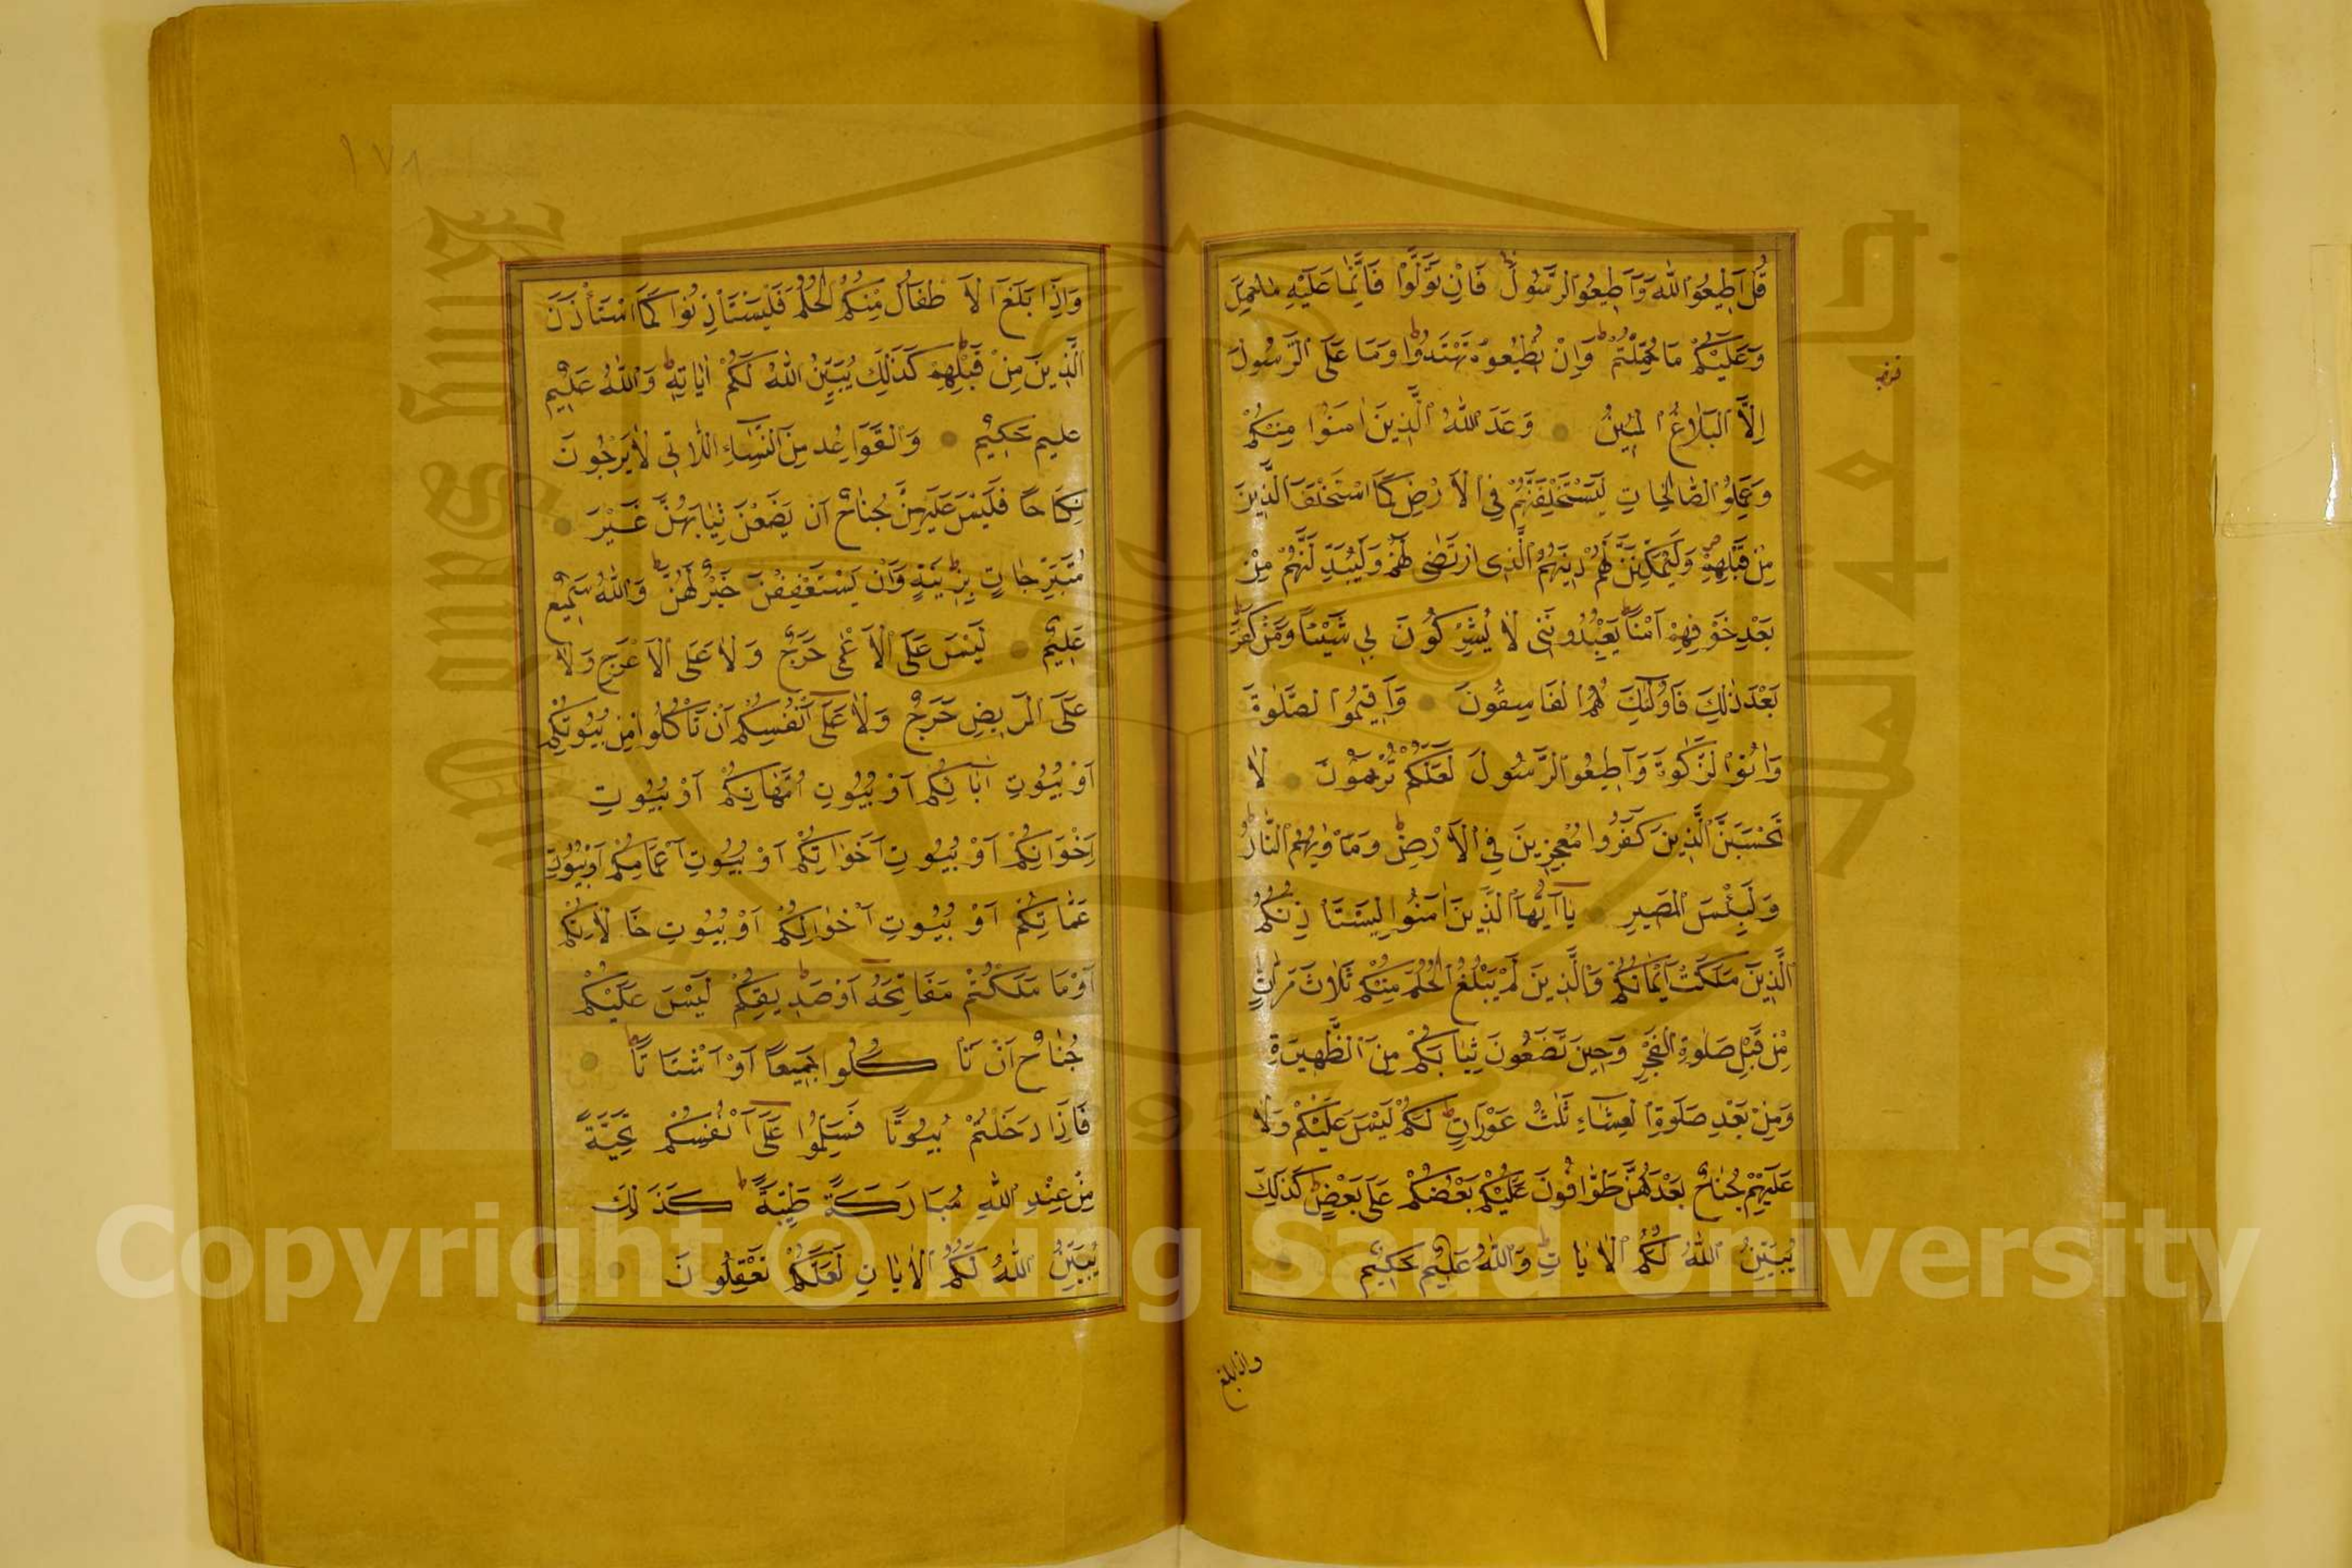 قُلْ اَطِيعُوا اللّٰهَ وَاَطِيعُوا الرَّسُولَ فَاِنْ تَوَلَّوْا فَاِنَّمَا عَلَيْهِ مَا حُمِّلَ
وَعَلَيْكُمْ مَا حُمِّلْتُمْ وَاِنْ تُطِيعُوهُ تَهْتَدُوا وَمَا عَلَى الرَّسُولِ
اِلَّا الْبَلَاغُ الْمُبِينُ وَعَدَ اللّٰهُ الَّذِينَ اٰمَنُوا مِنْكُمْ
وَعَمِلُوا الصَّالِحَاتِ لَيَسْتَخْلِفَنَّهُمْ فِي الْاَرْضِ كَمَا اسْتَخْلَفَ الَّذِينَ
مِنْ قَبْلِهِمْ وَلَيُمَكِّنَنَّ لَهُمْ دِينَهُمُ الَّذِي ارْتَضٰى لَهُمْ وَلَيُبَدِّلَنَّهُمْ مِنْ
بَعْدِ خَوْفِهِمْ اَمْنًا يَعْبُدُونَنِي لَا يُشْرِكُونَ بِي شَيْئًا وَمَنْ كَفَرَ
بَعْدَ ذٰلِكَ فَاُولٰئِكَ هُمُ الْفَاسِقُونَ وَاَقِيمُوا الصَّلٰوةَ
وَاٰتُوا الزَّكٰوةَ وَاَطِيعُوا الرَّسُولَ لَعَلَّكُمْ تُرْحَمُونَ لَا
تَحْسَبَنَّ الَّذِينَ كَفَرُوا مُعْجِزِينَ فِي الْاَرْضِ وَمَاْوٰيهُمُ النَّارُ
وَلَبِئْسَ الْمَصِيرُ يَا اَيُّهَا الَّذِينَ اٰمَنُوا لِيَسْتَاْذِنْكُمُ
الَّذِينَ مَلَكَتْ اَيْمَانُكُمْ وَالَّذِينَ لَمْ يَبْلُغُوا الْحُلُمَ مِنْكُمْ ثَلَاثَ مَرَّاتٍ
مِنْ قَبْلِ صَلٰوةِ الْفَجْرِ وَحِينَ تَضَعُونَ ثِيَابَكُمْ مِنَ الظَّهِيرَةِ
وَمِنْ بَعْدِ صَلٰوةِ الْعِشَاءِ ثَلٰثُ عَوْرَاتٍ لَكُمْ لَيْسَ عَلَيْكُمْ وَلَا
عَلَيْهِمْ جُنَاحٌ بَعْدَهُنَّ طَوَّافُونَ عَلَيْكُمْ بَعْضُكُمْ عَلٰى بَعْضٍ كَذٰلِكَ
يُبَيِّنُ اللّٰهُ لَكُمُ الْاٰيَاتِ وَاللّٰهُ عَلِيمٌ حَكِيمٌ
واذا بلغ
١٧٨
وَاِذَا بَلَغَ الْاَطْفَالُ مِنْكُمُ الْحُلُمَ فَلْيَسْتَاْذِنُوا كَمَا اسْتَاْذَنَ
الَّذِينَ مِنْ قَبْلِهِمْ كَذٰلِكَ يُبَيِّنُ اللّٰهُ لَكُمْ اٰيَاتِهِ وَاللّٰهُ عَلِيمٌ
عليم حَكِيمٌ وَالْقَوَاعِدُ مِنَ النِّسَاءِ اللَّاتِي لَا يَرْجُونَ
نِكَاحًا فَلَيْسَ عَلَيْهِنَّ جُنَاحٌ اَنْ يَضَعْنَ ثِيَابَهُنَّ غَيْرَ
مُتَبَرِّجَاتٍ بِزِينَةٍ وَاَنْ يَسْتَعْفِفْنَ خَيْرٌ لَهُنَّ وَاللّٰهُ سَمِيعٌ
عَلِيمٌ لَيْسَ عَلَى الْاَعْمٰى حَرَجٌ وَلَا عَلَى الْاَعْرَجِ وَلَا
عَلَى الْمَرِيضِ حَرَجٌ وَلَا عَلٰى اَنْفُسِكُمْ اَنْ تَاْكُلُوا مِنْ بُيُوتِكُمْ
اَوْ بُيُوتِ اٰبَائِكُمْ اَوْ بُيُوتِ اُمَّهَاتِكُمْ اَوْ بُيُوتِ
اِخْوَانِكُمْ اَوْ بُيُوتِ اَخَوَاتِكُمْ اَوْ بُيُوتِ اَعْمَامِكُمْ اَوْ بُيُوتِ
عَمَّاتِكُمْ اَوْ بُيُوتِ اَخْوَالِكُمْ اَوْ بُيُوتِ خَالَاتِكُمْ
اَوْ مَا مَلَكْتُمْ مَفَاتِحَهُ اَوْ صَدِيقِكُمْ لَيْسَ عَلَيْكُمْ
جُنَاحٌ اَنْ تَاْكُلُوا جَمِيعًا اَوْ اَشْتَاتًا
فَاِذَا دَخَلْتُمْ بُيُوتًا فَسَلِّمُوا عَلٰى اَنْفُسِكُمْ تَحِيَّةً
مِنْ عِنْدِ اللّٰهِ مُبَارَكَةً طَيِّبَةً كَذٰلِكَ
يُبَيِّنُ اللّٰهُ لَكُمُ الْاٰيَاتِ لَعَلَّكُمْ تَعْقِلُونَ
جامعة الملك سعود
King Saud University
1957
Copyright © King Saud University